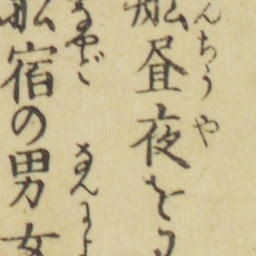 昼夜を
んちうや
宿の男女
なやど
なんによ